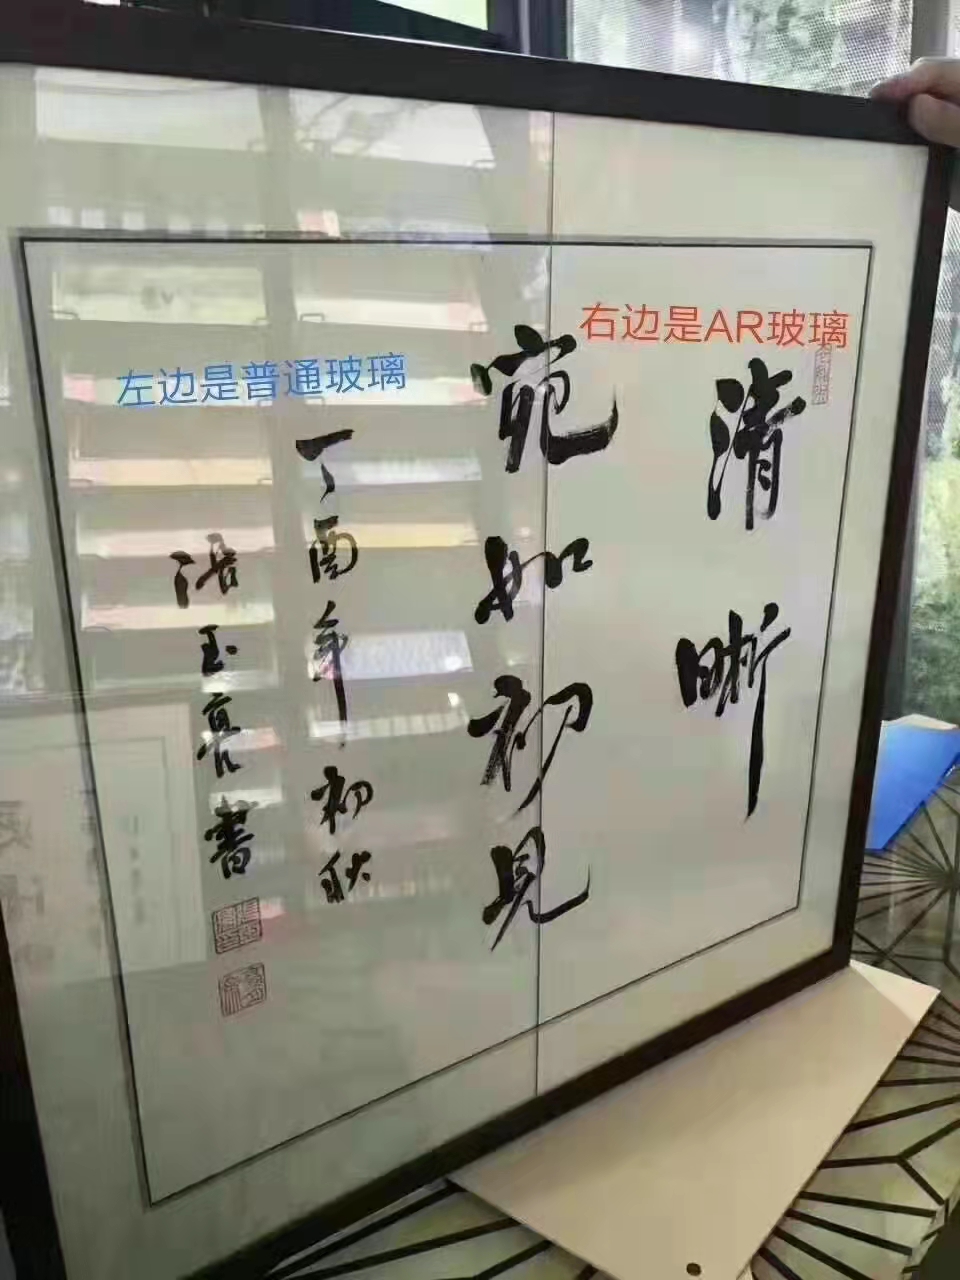 左边是普通玻璃
右边是AR玻璃
清晰
宛如初见
丁酉年初秋
玉亮書